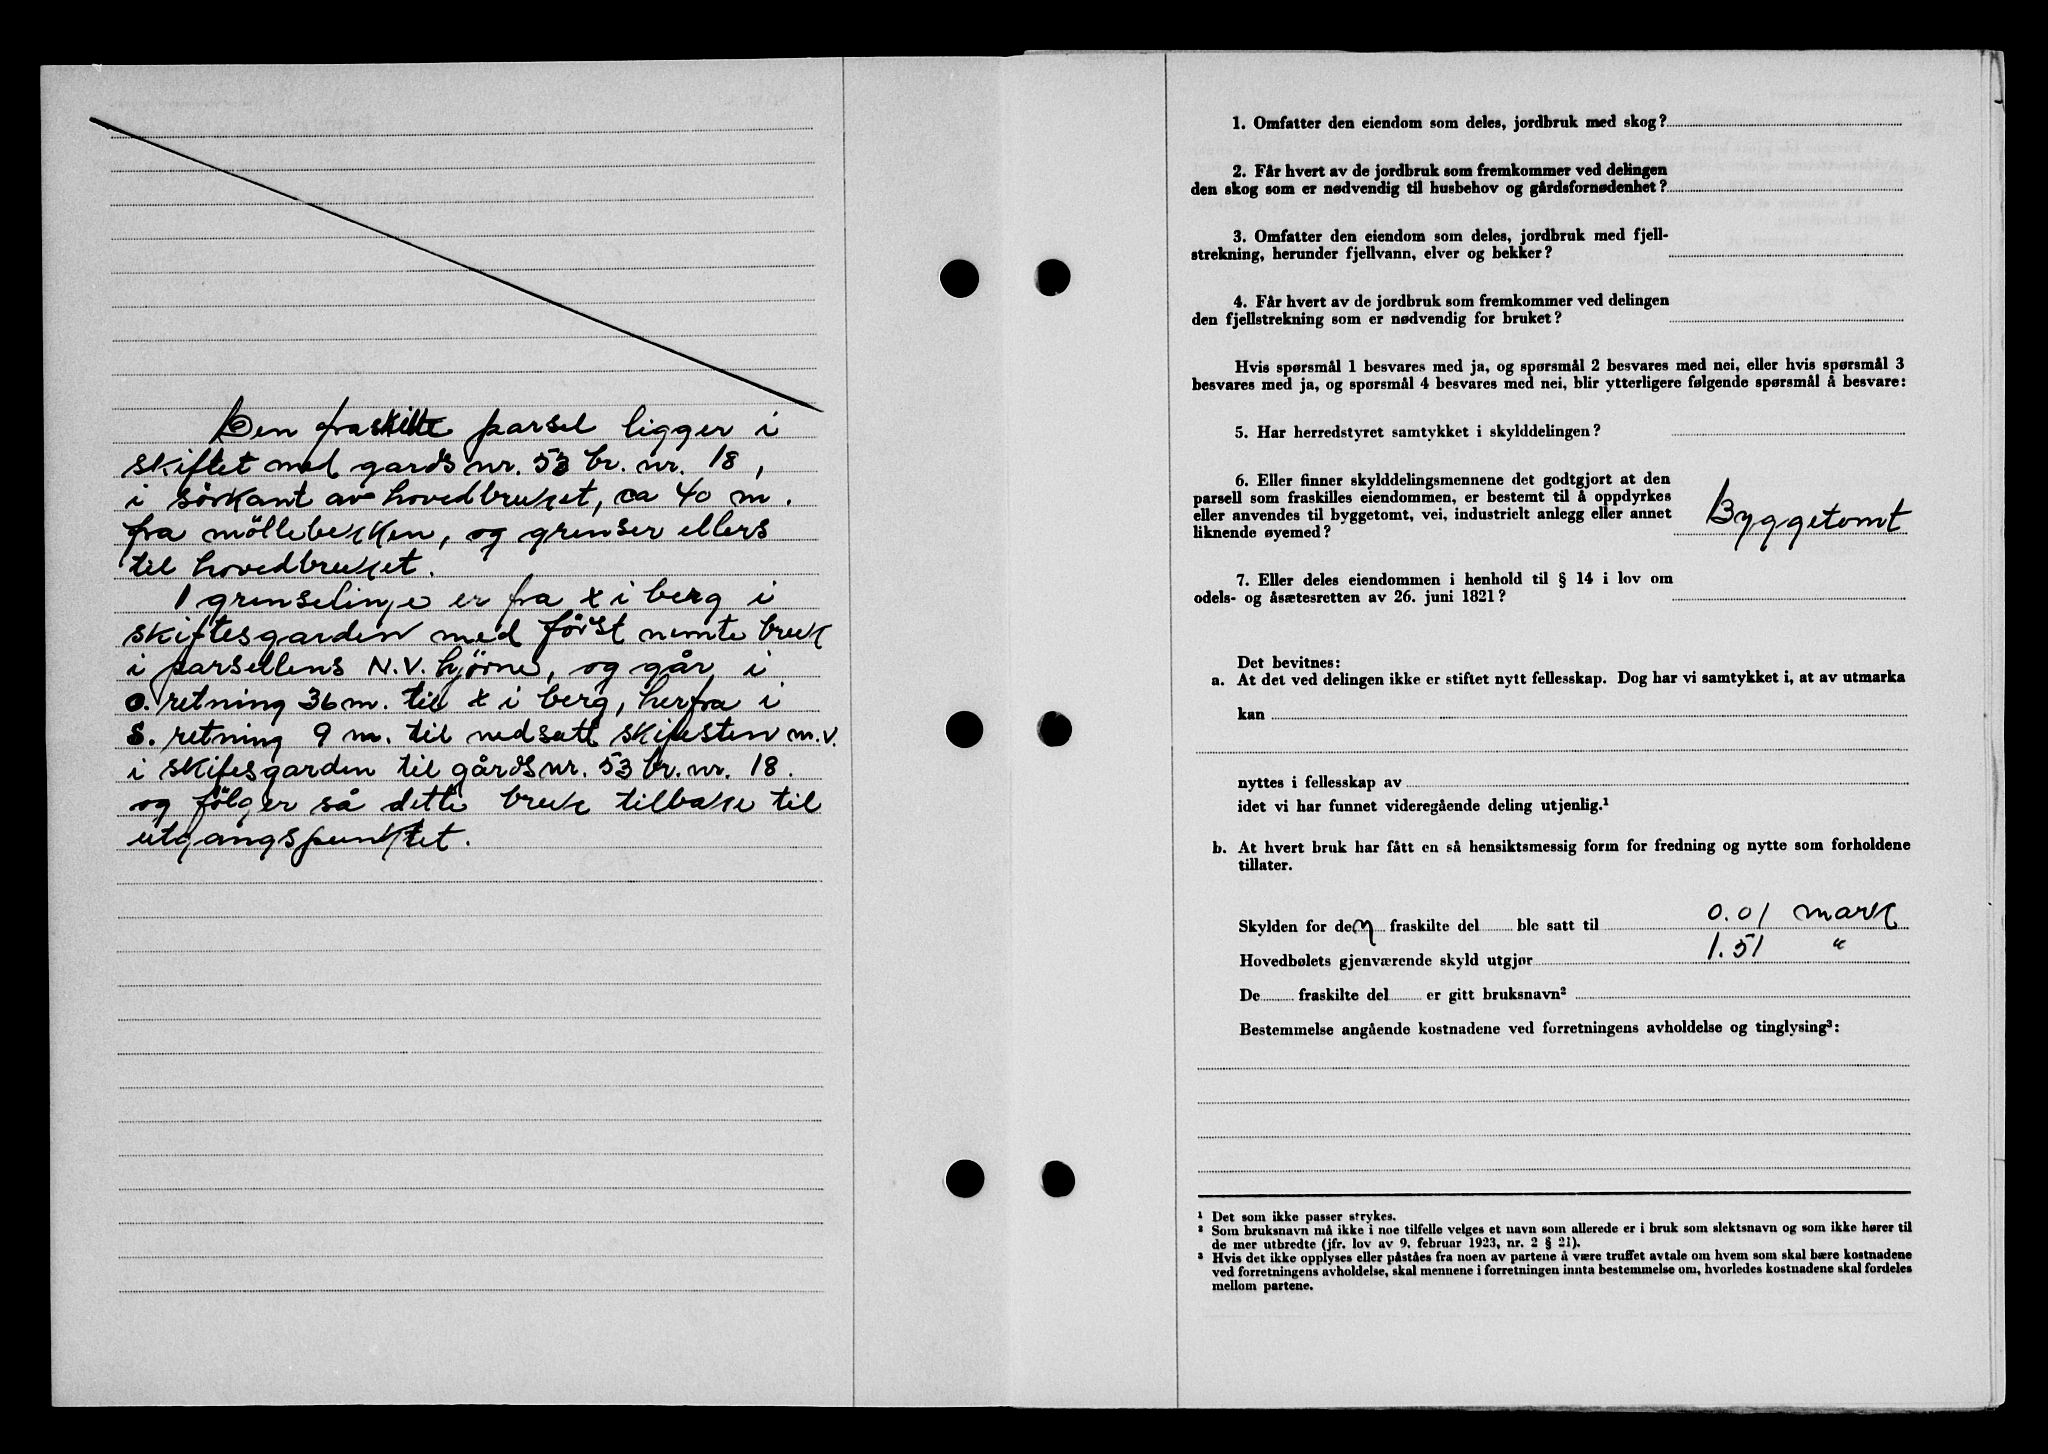 Den fraskilte parsel ligger i
skiftet med gards nr. 53 br. nr. 18,
i sörkant av hovedbruket, ca 40 m.
fra möllebekken, og grenser ellers
til hovedbruket.
1 grenselinje er fra x i berg i
skiftesgarden med först nemte bruk
i parsellens N.V. hjörne, og går i
o. retning 36 m. til x i berg, herfra i
s. retning 9 m. til nedsatt skifesten m.v.
i skifesgarden til gårds nr. 53 br. nr. 18.
og fölger så dette bruk tilbake til
utgangspunktet.
1. Omfatter den eiendom som deles, jordbruk med skog?
2. Får hvert av de jordbruk som fremkommer ved delingen
den skog som er nødvendig til husbehov og gårdsfornødenhet?
3. Omfatter den eiendom som deles, jordbruk med fjell-
strekning, herunder fjellvann, elver og bekker?
4. Får hvert av de jordbruk som fremkommer ved delingen
den fjellstrekning som er nødvendig for bruket?
Hvis spørsmål 1 besvares med ja, og spørsmål 2 besvares med nei, eller hvis spørsmål 3
besvares med ja, og spørsmål 4 besvares med nei, blir ytterligere følgende spørsmål å besvare:
5. Har herredstyret samtykket i skylddelingen?
6. Eller finner skylddelingsmennene det godtgjort at den
parsell som fraskilles eiendommen, er bestemt til å oppdyrkes
eller anvendes til byggetomt, vei, industrielt anlegg eller annet
liknende øyemed? Byggetomt
7. Eller deles eiendommen i henhold til § 14 i lov om
odels- og åsætesretten av 26. juni 1821?
Det bevitnes:
a. At det ved delingen ikke er stiftet nytt fellesskap. Dog har vi samtykket i, at av utmarka
kan
nyttes i fellesskap av
idet vi har funnet videregående deling utjenlig.¹
b. At hvert bruk har fått en så hensiktsmessig form for fredning og nytte som forholdene
tillater.
Skylden for den fraskilte del ble satt til 0.01 mark
Hovedbølets gjenværende skyld utgjør 1.51 "
De fraskilte del er gitt bruksnavn²
Bestemmelse angående kostnadene ved forretningens avholdelse og tinglysing³:
¹ Det som ikke passer strykes.
² Som bruksnavn må ikke i noe tilfelle velges et navn som allerede er i bruk som slektsnavn og som ikke hører til
de mer utbredte (jfr. lov av 9. februar 1923, nr. 2 § 21).
³ Hvis det ikke opplyses eller påståes fra noen av partene å være truffet avtale om hvem som skal bære kostnadene
ved forretningens avholdelse, skal mennene i forretningen innta bestemmelse om, hvorledes kostnadene skal fordeles
mellom partene.